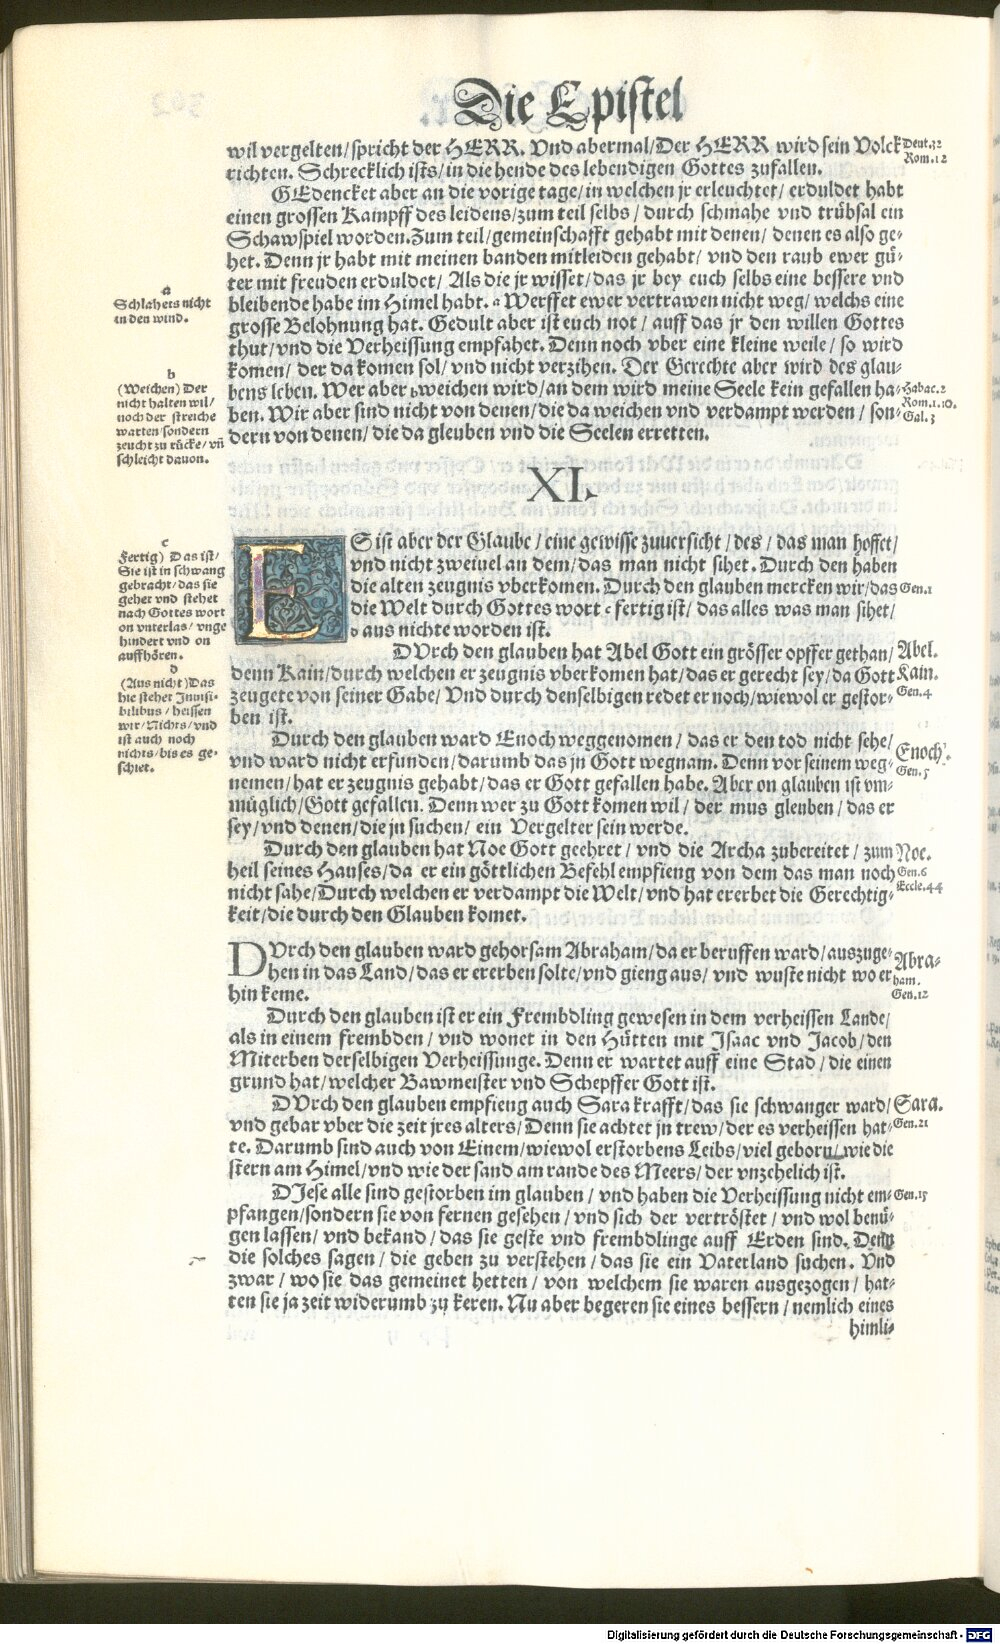 Die Epistel
wil vergelten/spricht der HERR. Vnd abermal/Der HERR wird sein Volck
richten. Schrecklich ists/in die hende des lebendigen Gottes zufallen.
Deut.32
Rom.12
GEdencket aber an die vorige tage/in welchen jr erleuchtet/erduldet habt
einen grossen Kampff des leidens/zum teil selbs/durch schmahe vnd trübsal ein
Schawspiel worden.Zum teil/gemeinschafft gehabt mit denen/denen es also ge-
het. Denn jr habt mit meinen banden mitleiden gehabt/vnd den raub ewer gü-
ter mit freuden erduldet/Als die jr wisset/das jr bey euch selbs eine bessere vnd
bleibende habe im Himel habt. a Werffet ewer vertrawen nicht weg/welchs eine
grosse Belohnung hat. Gedult aber ist euch not/auff das jr den willen Gottes
thut/vnd die Verheissung empfahet. Denn noch vber eine kleine weile/so wird
komen/der da komen sol/vnd nicht verzihen. Der Gerechte aber wird des glau-
bens leben. Wer aber b weichen wird/an dem wird meine Seele kein gefallen ha-
ben. Wir aber sind nicht von denen/die da weichen vnd verdampt werden/son-
dern von denen/die da gleuben vnd die Seelen erretten.
a
Schlahets nicht
in den wind.
b
(Weichen) Der
nicht halten wil/
noch der streiche
warten/sondern
zeucht zu rücke/vñ
schleicht dauon.
Habac.2
Rom.1.10.
Gal.3
XI.
ES ist aber der Glaube/eine gewisse zuuersicht/des/das man hoffet/
vnd nicht zweiuel an dem/das man nicht sihet. Durch den haben
die alten zeugnis vberkomen. Durch den glauben mercken wir/das
die Welt durch Gottes wort c fertig ist/das alles was man sihet/
d aus nichte worden ist.
c
Fertig) Das ist/
Sie ist in schwang
gebracht/das sie
gehet vnd stehet
nach Gottes wort
on vnterlas/vnge
hindert vnd on
auffhören.
d
(Aus nicht) Das
hie stehet Inuisi-
bilibus/heissen
wir/Nichts/vnd
ist auch noch
nichts/bis es ge-
schiet.
Gen.1
DVrch den glauben hat Abel Gott ein grösser opffer gethan/
denn Kain/durch welchen er zeugnis vberkomen hat/das er gerecht sey/da Gott
zeugete von seiner Gabe/Vnd durch denselbigen redet er noch/wiewol er gestor-
ben ist.
Abel.
Kain.
Gen.4
Durch den glauben ward Enoch weggenomen/das er den tod nicht sehe/
vnd ward nicht erfunden/darumb das jn Gott wegnam. Denn vor seinem weg-
nemen/hat er zeugnis gehabt/das er Gott gefallen habe. Aber on glauben ist vm-
müglich/Gott gefallen. Denn wer zu Gott komen wil/der mus gleuben/das er
sey/vnd denen/die jn suchen/ein Vergelter sein werde.
Enoch.
Gen.5
Durch den glauben hat Noe Gott geehret/vnd die Archa zubereitet/zum
heil seines Hauses/da er ein göttlichen Befehl empfieng von dem das man noch
nicht sahe/Durch welchen er verdampt die Welt/vnd hat ererbet die Gerechtig-
keit/die durch den Glauben komet.
Noe.
Gen.6
Eccle.44
DVrch den glauben ward gehorsam Abraham/da er beruffen ward/auszuge-
hen in das Land/das er ererben solte/vnd gieng aus/vnd wuste nicht wo er
hin keme.
Abra-
ham.
Gen.12
Durch den glauben ist er ein Frembdling gewesen in dem verheissen Lande/
als in einem frembden/vnd wonet in den Hütten mit Isaac vnd Jacob/den
Miterben derselbigen Verheissunge. Denn er wartet auff eine Stad/die einen
grund hat/welcher Bawmeister vnd Schepffer Gott ist.
DVrch den glauben empfieng auch Sara krafft/das sie schwanger ward/
vnd gebar vber die zeit jres alters/Denn sie achtet jn trew/der es verheissen hat-
te. Darumb sind auch von Einem/wiewol erstorbens Leibs/viel geborn/wie die
stern am Himel/vnd wie der sand am rande des Meers/der vnzehelich ist.
Sara.
Gen.21
DIese alle sind gestorben im glauben/vnd haben die Verheissung nicht em-
pfangen/sondern sie von fernen gesehen/vnd sich der vertröstet/vnd wol benü-
gen lassen/vnd bekand/das sie geste vnd frembdlinge auff Erden sind. Denn
die solches sagen/die geben zu verstehen/das sie ein Vaterland suchen. Vnd
zwar/wo sie das gemeinet hetten/von welchem sie waren ausgezogen/hat-
ten sie ja zeit widerumb zu keren. Nu aber begeren sie eines bessern/nemlich eines
himli-
Gen.15
Digitalisierung gefördert durch die Deutsche Forschungsgemeinschaft - DFG